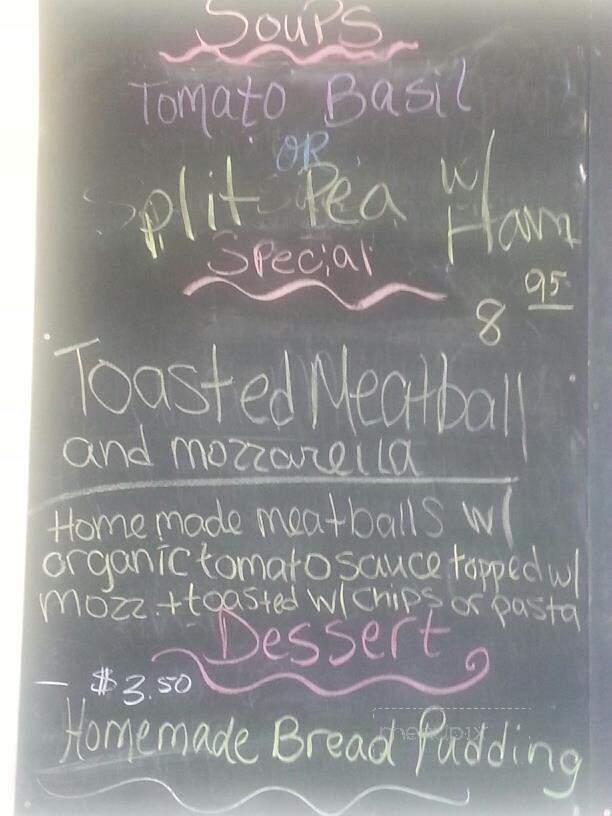 Soups
Tomato Basil
OR
Split Pea w/
Ham
Special
8 95
Toasted Meatball
and mozzarella
Homemade meatballs w/
organic tomato sauce topped w/
mozz. + toasted w/ chips or pasta
Dessert
— $3.50
Homemade Bread Pudding
menupix